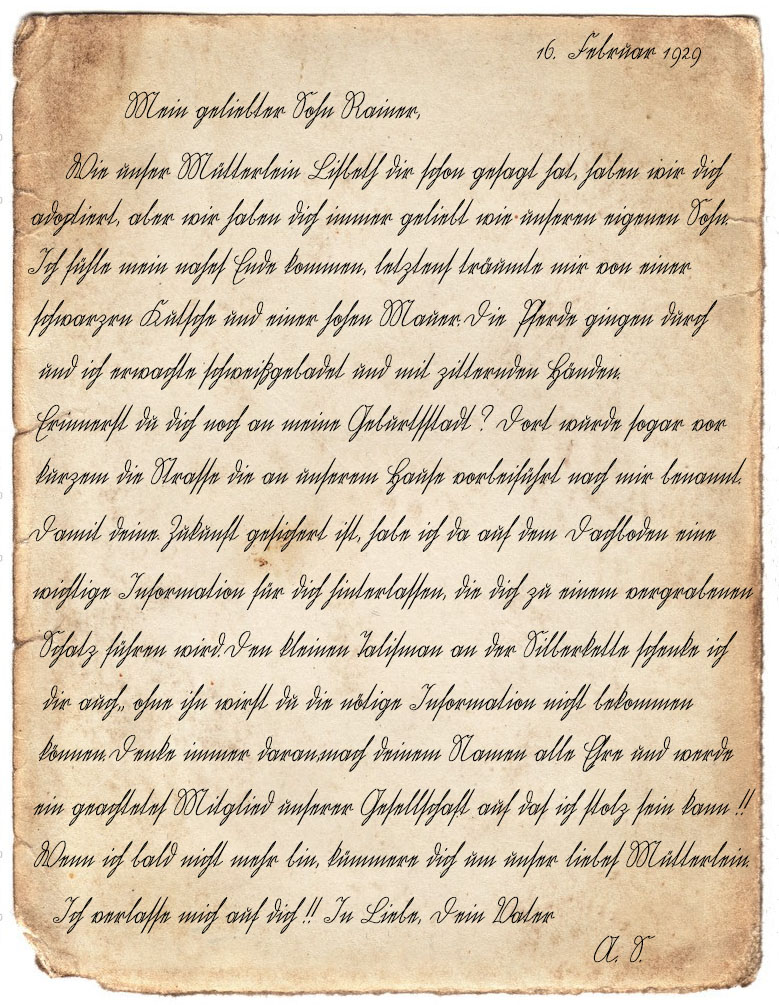 16. Februar 1929
Mein geliebter Sohn Rainer,
Wie unser Mütterlein Lisbeth dir schon gesagt hat, haben wir dich
adoptiert, aber wir haben dich immer geliebt wie unseren eigenen Sohn.
Ich fühle mein nahes Ende kommen, letztens träumte mir von einer
schwarzen Kutsche und einer hohen Mauer. Die Pferde gingen durch
und ich erwachte schweißgebadet und mit zitternden Händen.
Erinnerst du dich noch an meine Geburtsstadt? Dort wurde sogar vor
kurzem die Strasse die an unserem Hause vorbeiführt nach mir benannt.
Damit deine Zukunft gesichert ist, habe ich da auf dem Dachboden eine
wichtige Information für dich hinterlassen, die dich zu einem vergrabenen
Schatz führen wird. Den kleinen Talisman an der Silberkette schenke ich
dir auch,, ohne ihn wirst du die nötige Information nicht bekommen
können. Denke immer daran, mach deinem Namen alle Ehre und werde
ein geachtetes Mitglied unserer Gesellschaft auf das ich stolz sein kann!!
Wenn ich bald nicht mehr bin, kümmere dich um unser liebes Mütterlein.
Ich verlasse mich auf dich!! In Liebe, Dein Vater
A. S.